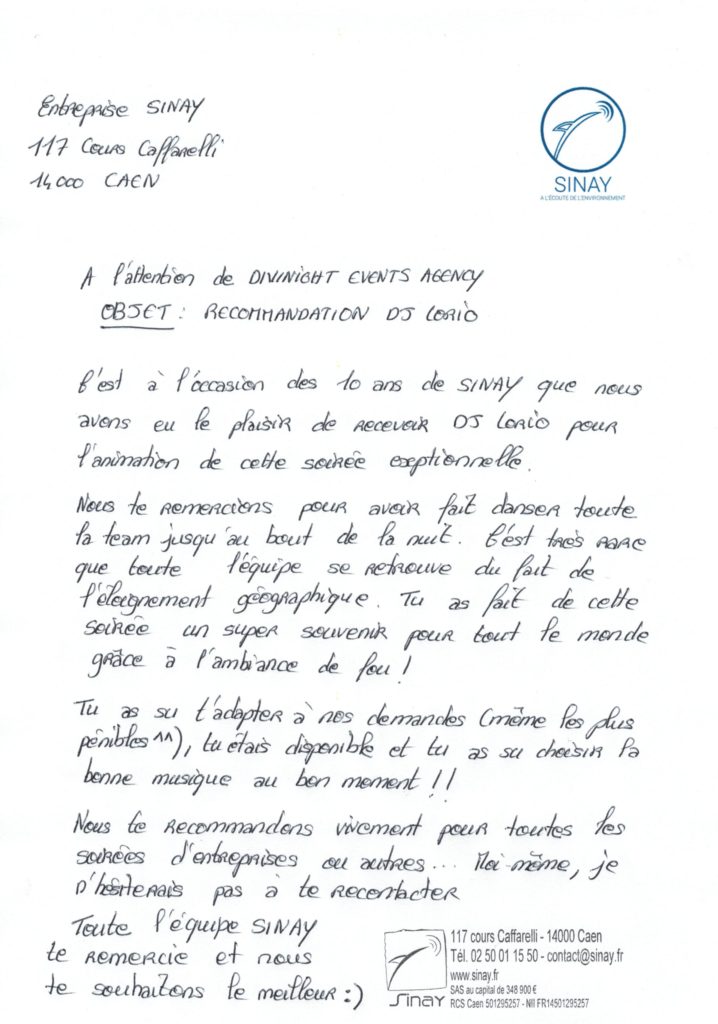 Entreprise SINAY
117 Cours Caffarelli
14000 CAEN
SINAY
A L'ÉCOUTE DE L'ENVIRONNEMENT
A l'attention de DIVINIGHT EVENTS AGENCY
OBJET : RECOMMANDATION DJ LORIO
C'est à l'occasion des 10 ans de SINAY que nous
avons eu le plaisir de recevoir DJ LORIO pour
l'animation de cette soirée exeptionnelle.
Nous te remercions pour avoir fait danser toute
la team jusqu'au bout de la nuit. C'est très rare
que toute l'équipe se retrouve du fait de
l'éloignement géographique. Tu as fait de cette
soirée un super souvenir pour tout le monde
grâce à l'ambiance de fou !
Tu as su t'adapter à nos demandes (même les plus
pénibles ^^), tu étais disponible et tu as su choisir la
bonne musique au bon moment !!
Nous te recommandons vivement pour toutes les
soirées d'entreprises ou autres... Moi-même, je
n'hésiterais pas à te recontacter
Toute l'équipe SINAY
te remercie et nous
te souhaitons le meilleur :)
117 cours Caffarelli - 14000 Caen
Tél. 02 50 01 15 50 - contact@sinay.fr
www.sinay.fr
SAS au capital de 348 900 €
Sinay RCS Caen 501295257 - NII FR14501295257